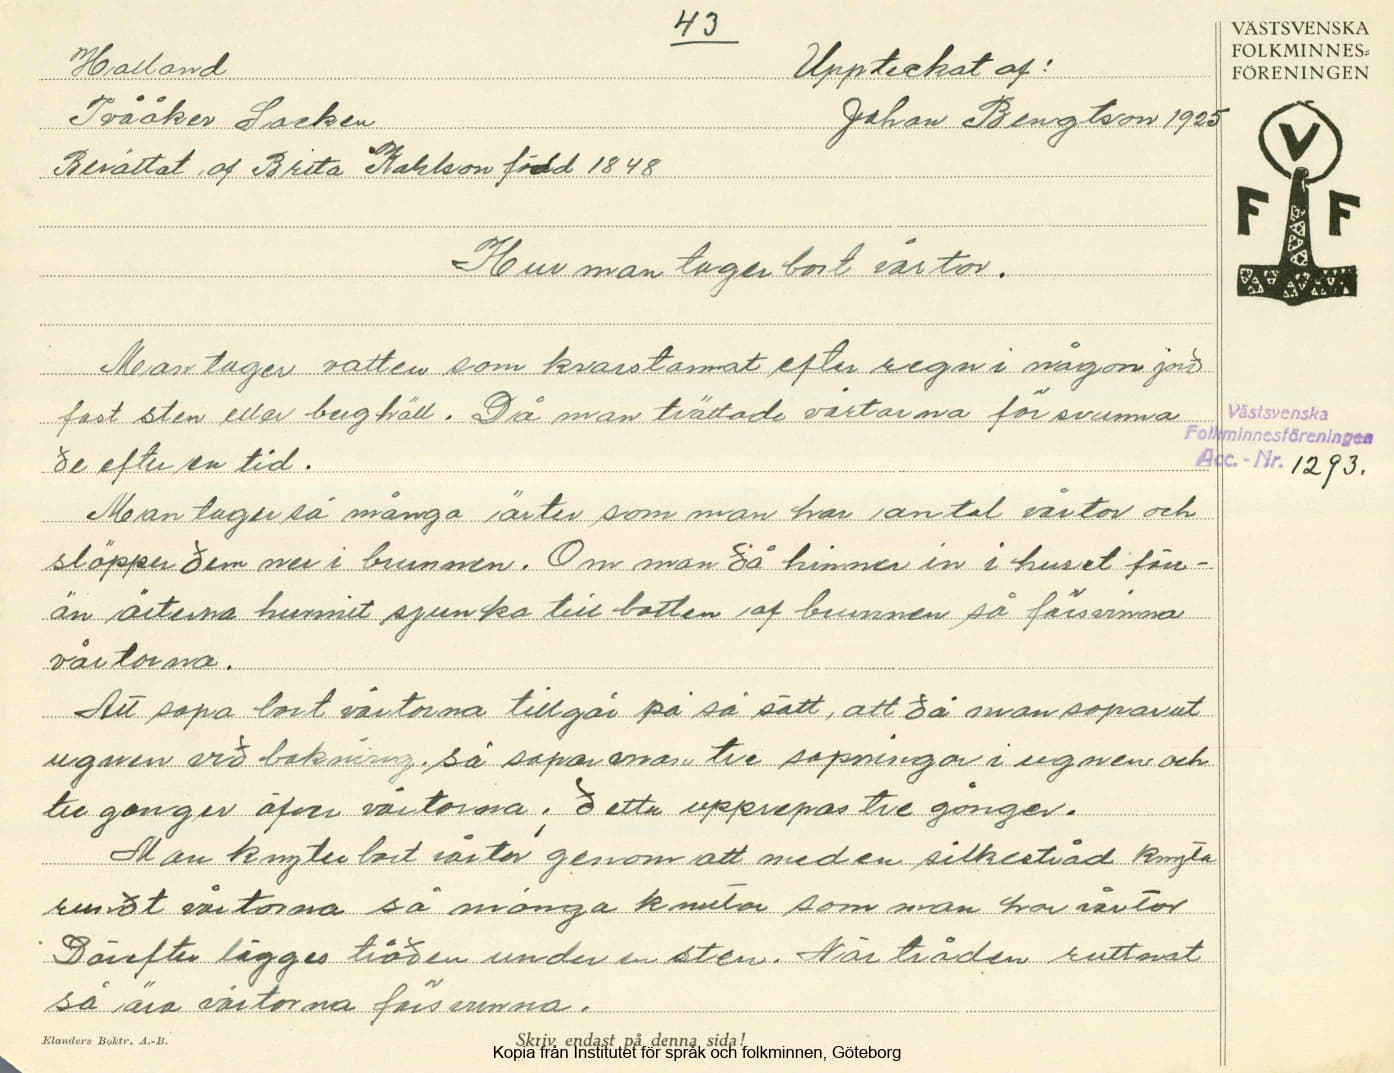 43
Halland
Upptekat af:
Tvååker Sacken
Johan Bengtson 1925
Berättat af Brita Karlson född 1848
Hur man tager bort vårtor.
Man tager vatten som kvarstannat efter regn i någon jord
fast sten eller berghäll. Då man tvättade vårtorna försvunna
de efter en tid.
Man tager så många ärter som man har antal vårtor och
släpper dem ner i brunnen. Om man då hinner in i huset för-
än ärterna hunnit sjunka till botten af brunnen så försvinna
vårtorna.
Att sopa bort vårtorna tillgår på så sätt, att då man sopar ut
ugnen vid bakning. så sopar man tre sopningar i ugnen och
tre gånger öfver vårtorna, detta upprepas tre gånger.
Man knyter bort vårtor genom att med en silkestråd knyta
rundt vårtorna så många knutar som man har vårtor
Därefter lägges tråden under en sten. När tråden ruttnat
så äro vårtorna försvunna.
VÄSTSVENSKA
FOLKMINNES-
FÖRENINGEN
V
F F
Västsvenska
Folkminnesföreningen
Acc.-Nr. 1293.
Elanders Boktr. A.-B.
Skriv endast på denna sida!
Kopia från Institutet för språk och folkminnen, Göteborg